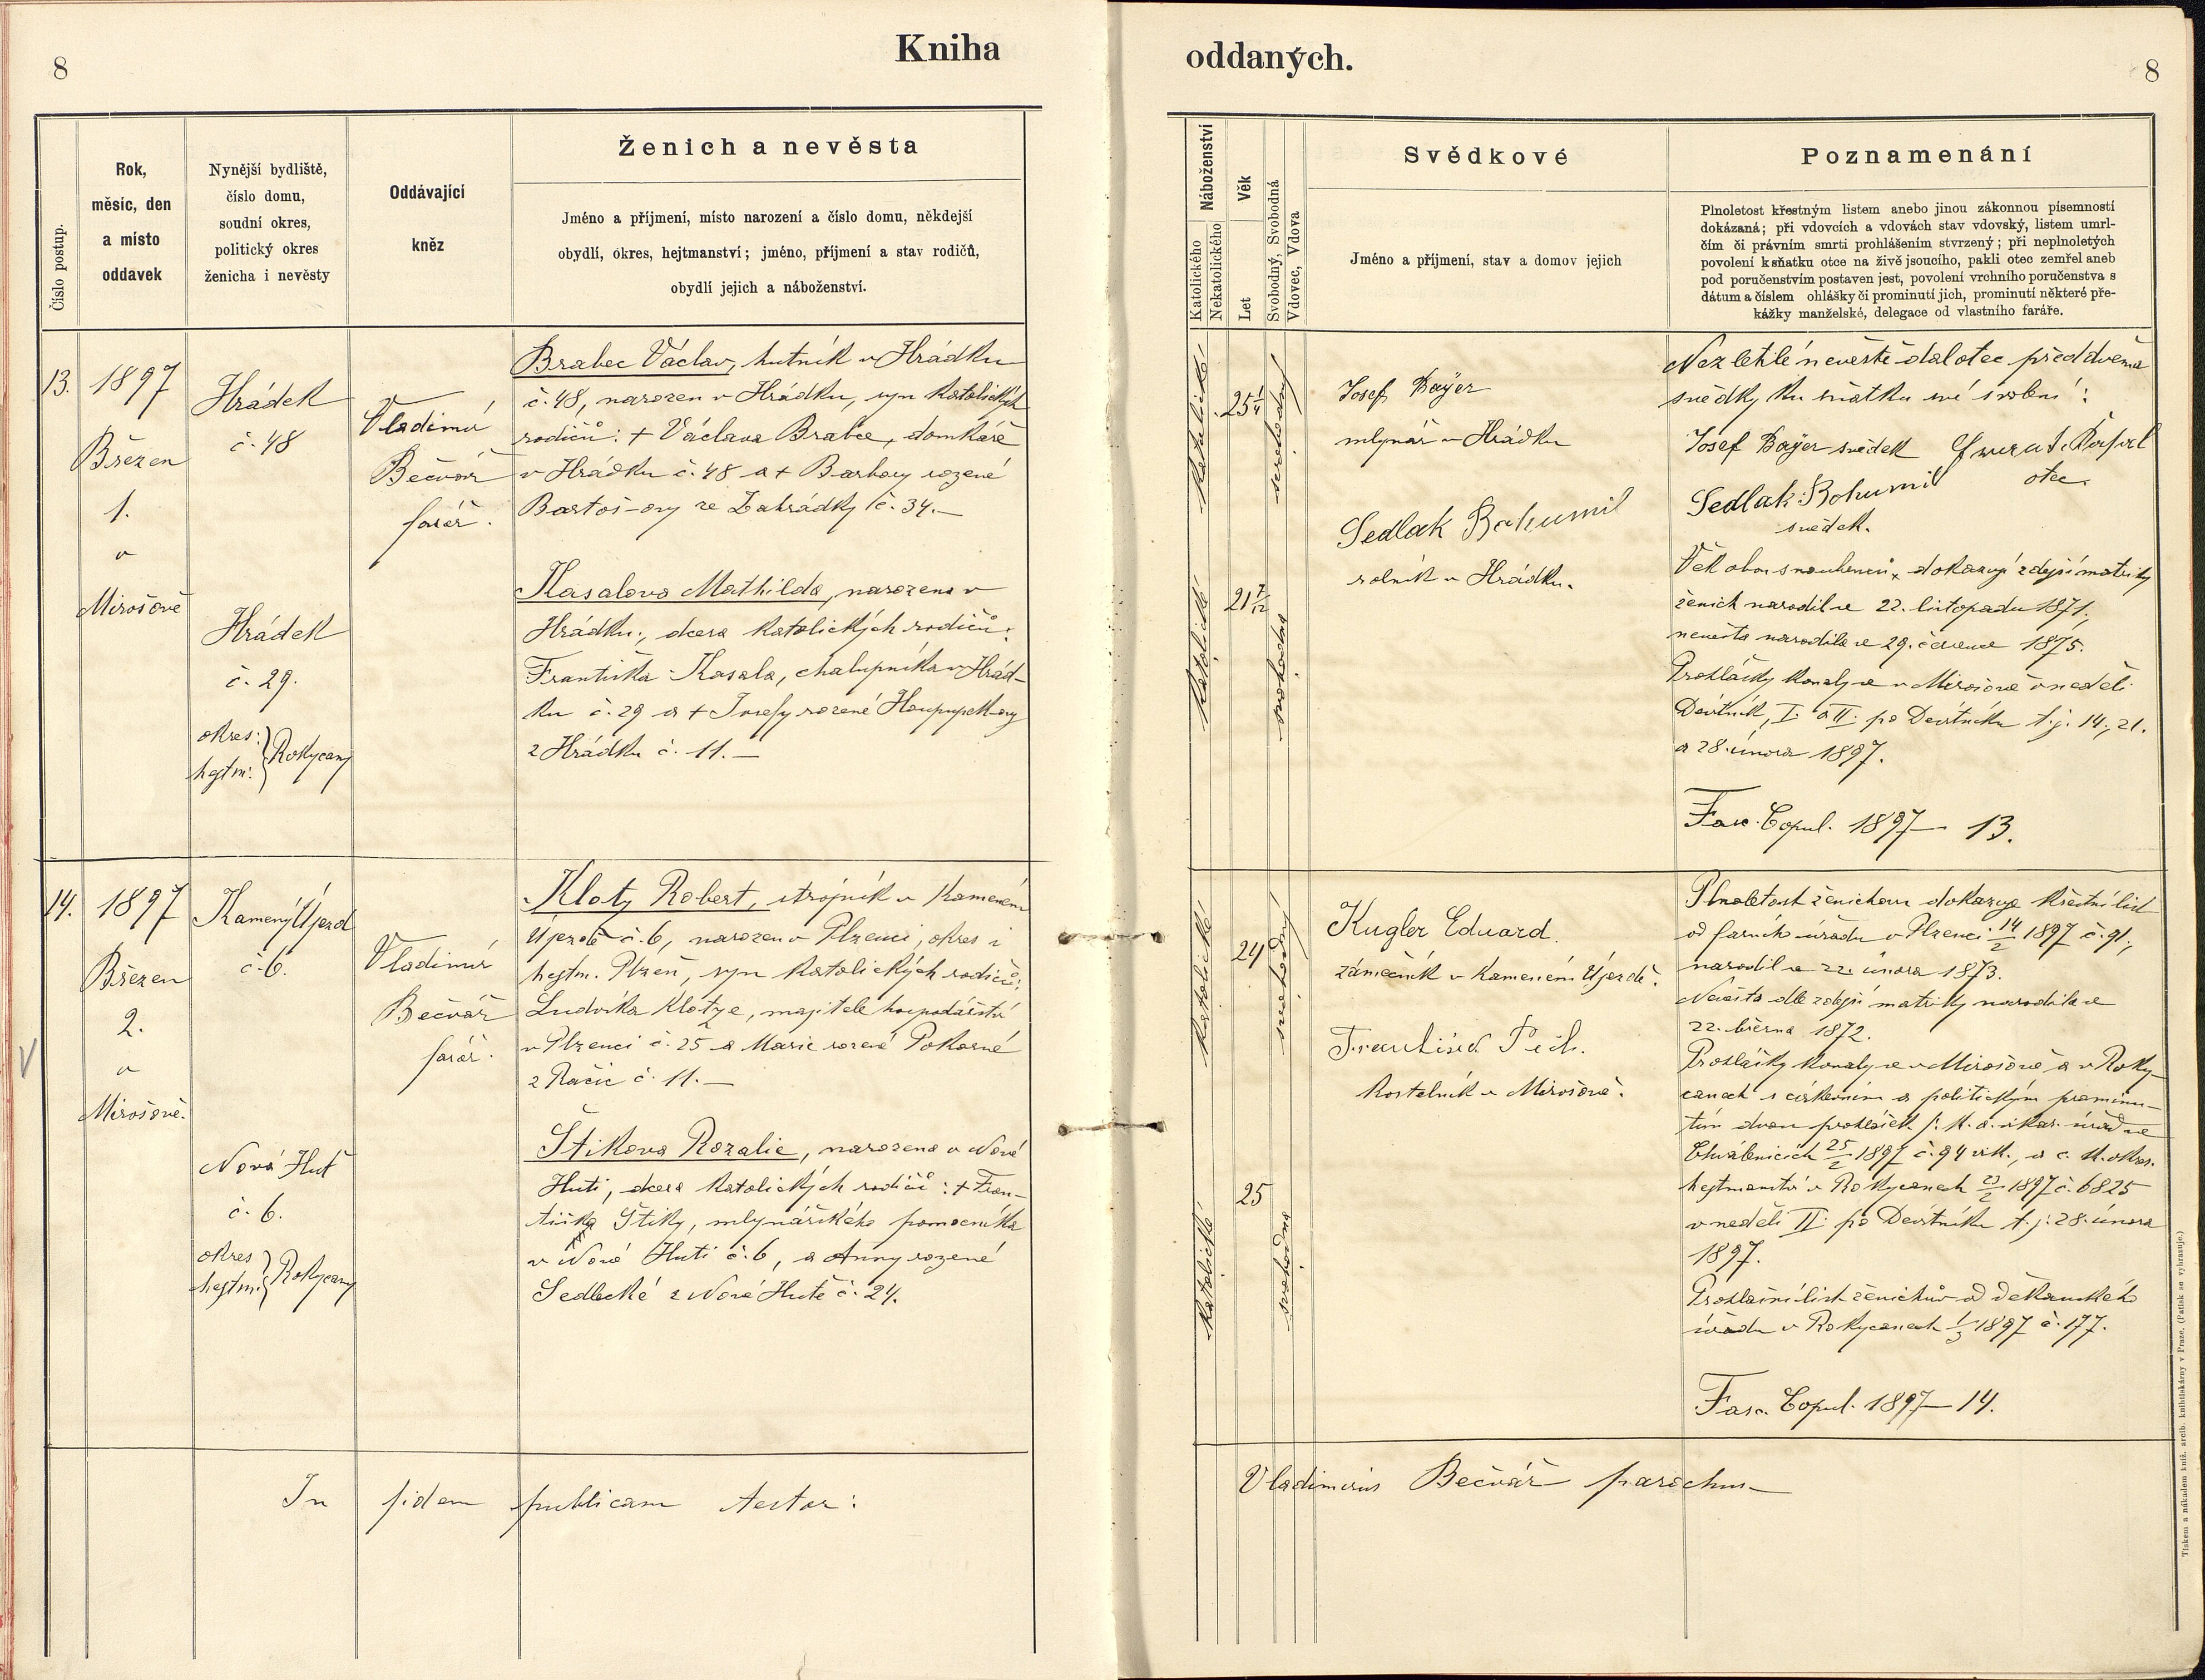 8
Kniha
oddaných.
8
Číslo postup.
Rok,
měsíc, den
a místo
oddavek
Nynější bydliště,
číslo domu,
soudní okres,
politický okres
ženicha i nevěsty
Oddávající
kněz
Ženich a nevěsta
Jméno a příjmení, místo narození a číslo domu, někdejší
obydlí, okres, hejtmanství; jméno, příjmení a stav rodičů,
obydlí jejich a náboženství.
Náboženství
Katolického
Nekatolického
Věk
Let
Svobodný, Svobodná
Vdovec, Vdova
Svědkové
Jméno a příjmení, stav a domov jejich
Poznamenání
Plnoletost křestným listem anebo jinou zákonnou písemností
dokázaná; při vdovcích a vdovách stav vdovský, listem umrl-
čím či právním smrti prohlášením stvrzený; při neplnoletých
povolení k sňatku otce na živě jsoucího, pakli otec zemřel aneb
pod poručenstvím postaven jest, povolení vrchního poručenstva s
dátum a číslem ohlášky či prominutí jich, prominutí některé pře-
kážky manželské, delegace od vlastního faráře.
13.
1897
Březen
1.
v
Mirošově
Hrádek
č. 48
Hrádek
č. 29.
okres:
hejtm:
Rokycany
Vladimír
Bečvář
farář.
Brabec Václav, hutník v Hrádku
č. 48, narozen v Hrádku, syn katolických
rodičů: + Václava Brabce, domkáře
v Hrádku č. 48 a + Barbory rozené
Bartoš-ovy ze Zahrádky č. 34.—
Kasalova Mathilda, narozena v
Hrádku, dcera katolických rodičů:
Františka Kasala, chalupníka v Hrád-
ku č. 29 a + Josefy rozené
z Hrádku č. 11.—
katolické
25 1/4
svobodný
katolické
21 7/12
svobodná
Josef Bayer
mlynář v Hrádku
Sedlak Bohumil
rolník v Hrádku.
Nezletilé nevěstě dal otec před dvěma
svědky ku sňatku své svolení:
Josef Bayer svědek
otec
Sedlak Bohumil
svědek.
Věk obou snoubenců dokazují zdejší matriky
ženich narodil se 22. listopadu 1871,
nevěsta narodila se 29. července 1875.
Prohlášky konaly se v Mirošově v neděli
Devítník, I. a II. po Devítníku t.j. 14., 21.
a 28. února 1897.
Fasc. Copul. 1897— 13.
14.
1897
Březen
2.
v
Mirošově.
Kamený Újezd
č. 6.
Nová Huť
č. 6.
okres
hejtm:
Rokycany
Vladimír
Bečvář
farář.
Klotz Robert, strojník v Kameném
Újezdě č. 6, narozen v Plzenci, okres i
hejtm. Plzeň, syn katolických rodičů:
Ludvíka Klotze, majitele hospodářství
v Plzenci č. 25 a Marie rozené Pokorné
z Račic č. 11.—
Štikova Rozalie, narozena v Nové
Huti, dcera katolických rodičů: + Fran-
tiška Štiky, mlynářského pomocníka
v Nové Huti č. 6, a Anny rozené
Sedlecké z Nové Hutě č. 24.
katolické
24
svobodný
katolické
25
svobodná
Kugler Eduard.
zámečník v Kameném Újezdě.
František Pech.
kostelník v Mirošově.
Plnoletost ženichovu dokazuje křestní list
od farního úřadu v Plzenci 14/2 1897 č. 91.,
narodil se 22. února 1873.
Nevěsta dle zdejší matriky narodila se
22. března 1872.
Prohlášky konaly se v Mirošově a v Roky-
canech s církevním a politickým prominu-
tím dvou prohlášek j: k. a. vikar. úřad ve
Chválenicích 25/2 1897 č. 94 vik., a c. k. okres.
hejtmanství v Rokycanech 23/2 1897 č. 6825
v neděli II. po Devítníku t.j. 28. února
1897.
Prohlašní list ženichův od děkanského
úřadu v Rokycanech 1/3 1897 č. 177.
Fasc. Copul. 1897— 14.
In fidem publicam testor:
Vladimirus Bečvář parochus
Tiskem a nákladem kníž. arcib. knihtiskárny v Praze. (Patisk se vyhrazuje.)